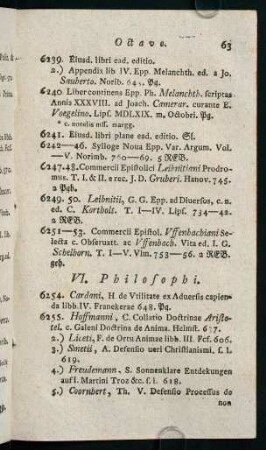 Octavo. 63
6239. Eiusd. libri ead. editio.
2.) Appendix lib IV. Epp. Melanchth. ed. a Jo.
Sauberto. Norib. 645. Pg.
6240. Liber continens Epp. Ph. Melanchth. scriptas
Annis XXXVIII. ad Joach. Camerar. curante E.
Voegelino. Lips. MDLXIX. m. Octobri. Pg.
* c. nonnullis mss. margg.
6241. Eiusd. libri plane ead. editio. Sl.
6242—46. Sylloge Noua Epp. Var. Argum. Vol.
—V. Norimb. 760—69. 5 REB.
6247.48. Commercii Epistolici Leibnitiani Prodro-
mus. T. I. & II. e rec. J. D. Gruberi. Hanov. 745.
2 Pgb.
6249. 50. Leibnitii, G. G. Epp. ad Diuersos, c. n.
ed. C. Kortholt. T. I—IV. Lips. 734—42.
2 REB.
6251—53. Commercii Epistol. Vffenbachiani Se-
lecta c. Obseruatt. ac Vffenbach. Vita ed. I. G.
Schelhorn. T. I—V Vlm. 753—56. 2 REB.
geh.
VI. Philosophi.
6254. Cardani, H de Vtilitate ex Aduersis capien-
da libb. IV. Franekerae 648. Pg.
6255. Hoffmanni, C. Collatio Doctrinae Aristo-
tel. c. Galeni Doctrina de Anima. Helmst. 637.
2.) Liceti, F. de Ortu Animae libb. III. Fcf. 606.
3.) Smetii, A. Defensio ueri Christianismi. s. l.
619.
4.) Freudemann, S. Sonnenklare Entdekungen
auf I. Martini Troz &c. s. l. 618.
5.) Coornhert, Th. V. Defensio Processus de
non